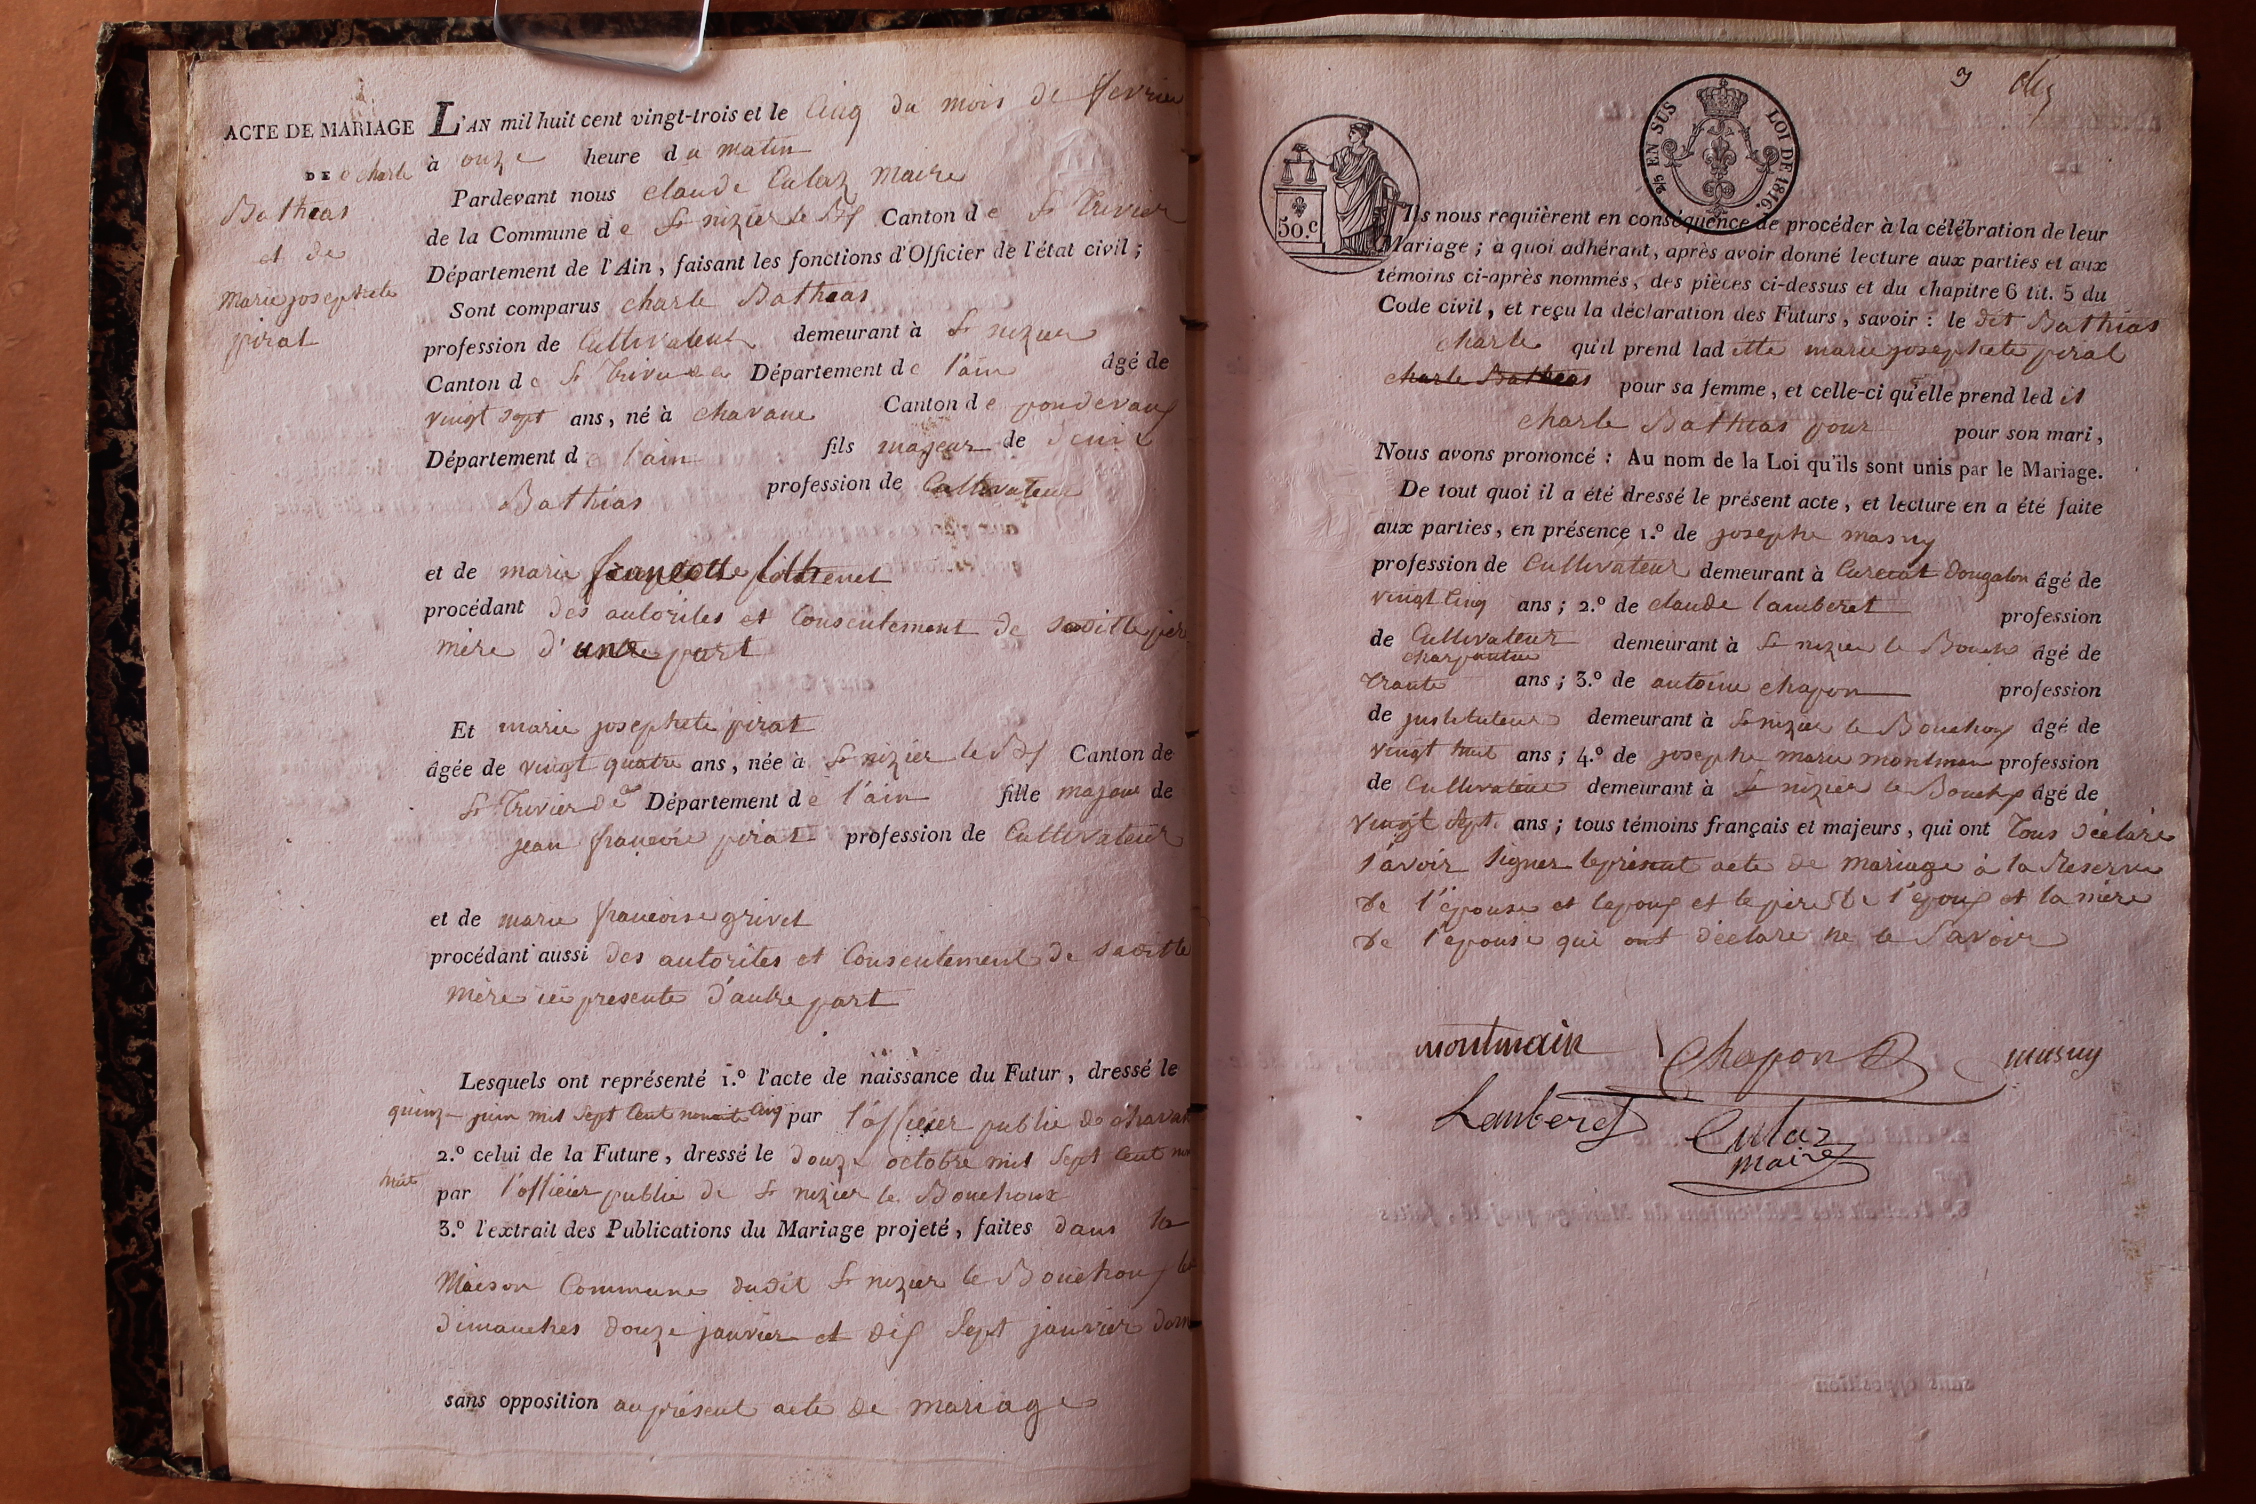 ACTE DE MARIAGE
DE charle
Bathias
et de
marie josephete
pirat
L'AN mil huit cent vingt-trois et le cinq du mois de fevrier
à onze heure du matin
Pardevant nous claude Culaz maire
de la Commune de St nizier le Canton de St Trivier
Département de l'Ain, faisant les fonctions d'Officier de l'état civil;
Sont comparus charle Bathias
profession de Cultivateur demeurant à St nizier
Canton de St Trivier de Département de l'ain âgé de
vingt sept ans, né à chavane Canton de pondevaux
Département de l'ain fils majeur de
Bathias profession de Cultivateur
et de marie
procédant des autorites et Consentement de
mère d'une part
Et marie josephete pirat
âgée de vingt quatre ans, née à St nizier le Canton de
St Trivier de Département de l'ain fille majeure de
jean françois pirat profession de Cultivateur
et de marie francoise grivet
procédant aussi des autorites et Consentement de saditte
mère ici presente d'autre part
Lesquels ont représenté 1.º l'acte de naissance du Futur, dressé le
quinze juin mil sept Cent nonante Cinq par l'officier public de chavan
2.º celui de la Future, dressé le douze octobre mil Sept Cent non
huit
par l'officier public de St nizier le Bouchoux
3.º l'extrait des Publications du Mariage projeté, faites dans la
Maison Commune dudit St nizier le Bouchoux les
dimanches douze janvier et dix Sept janvier
sans opposition au présent acte de mariage
9
50.C
2/5 EN SUS LOI DE 1816.
Ils nous requièrent en conséquence de procéder à la célébration de leur
Mariage; à quoi adhérant, après avoir donné lecture aux parties et aux
témoins ci-après nommés, des pièces ci-dessus et du chapitre 6 tit. 5 du
Code civil, et reçu la déclaration des Futurs, savoir: le dit Bathias
charle qu'il prend laditte marie josephete pirat
charle Bathias pour sa femme, et celle-ci qu'elle prend ledit
charle Bathias pour pour son mari,
Nous avons prononcé: Au nom de la Loi qu'ils sont unis par le Mariage.
De tout quoi il a été dressé le présent acte, et lecture en a été faite
aux parties, en présence 1.º de josephe masuy
profession de Cultivateur demeurant à Curciat dongalon âgé de
vingt Cinq ans; 2.º de claude lamberet profession
de Cultivateur demeurant à St nizier le Bouch âgé de
charpentier
trante ans; 3.º de antoine chapon profession
de justituteur demeurant à St nizier le Bouchoux âgé de
vingt huit ans; 4.º de josephe marie montmain profession
de Cultivateur demeurant à St nizier le Bouch âgé de
vingt sept ans; tous témoins français et majeurs, qui ont Tous déclaré
savoir Signer le présent acte de mariage à la Reserve
de l'épouse et lepoux et le père de l'époux et la mère
de l'epouse qui ont déclare ne le Savoir
montmain Chapon masuy
Lamberet Culaz
maire